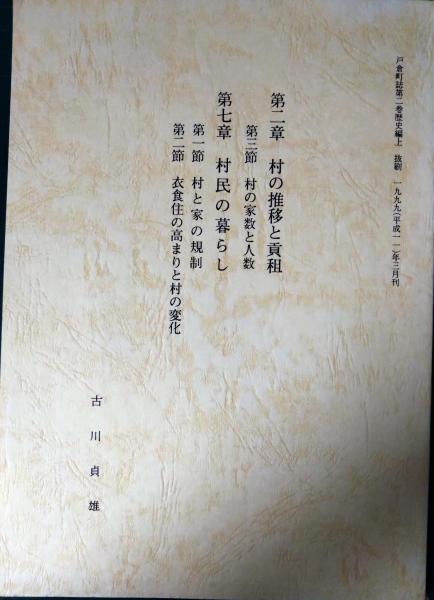 戸倉町誌第二巻歴史編上　抜刷　一九九九(平成一一)年三月刊
第二章　村の推移と貢租
第三節　村の家数と人数
第七章　村民の暮らし
第一節　村と家の規制
第二節　衣食住の高まりと村の変化
古川貞雄